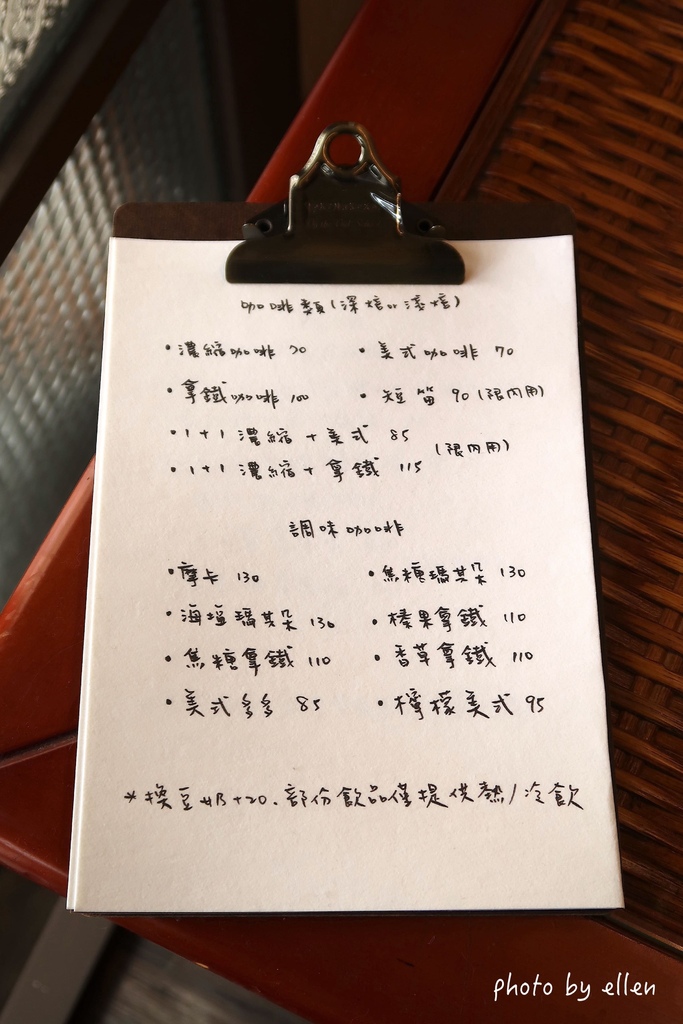 咖啡類(深焙or淺焙)
•濃縮咖啡 70 •美式咖啡 70
•拿鐵咖啡 100 •短笛 90(限內用)
•1+1 濃縮+美式 85
(限內用)
•1+1 濃縮+拿鐵 115
調味咖啡
•摩卡 130 •焦糖瑪其朵 130
•海鹽瑪其朵 130 •榛果拿鐵 110
•焦糖拿鐵 110 •香草拿鐵 110
•美式多多 85 •檸檬美式 95
*換豆奶+20.部份飲品僅提供熱/冷飲
photo by ellen